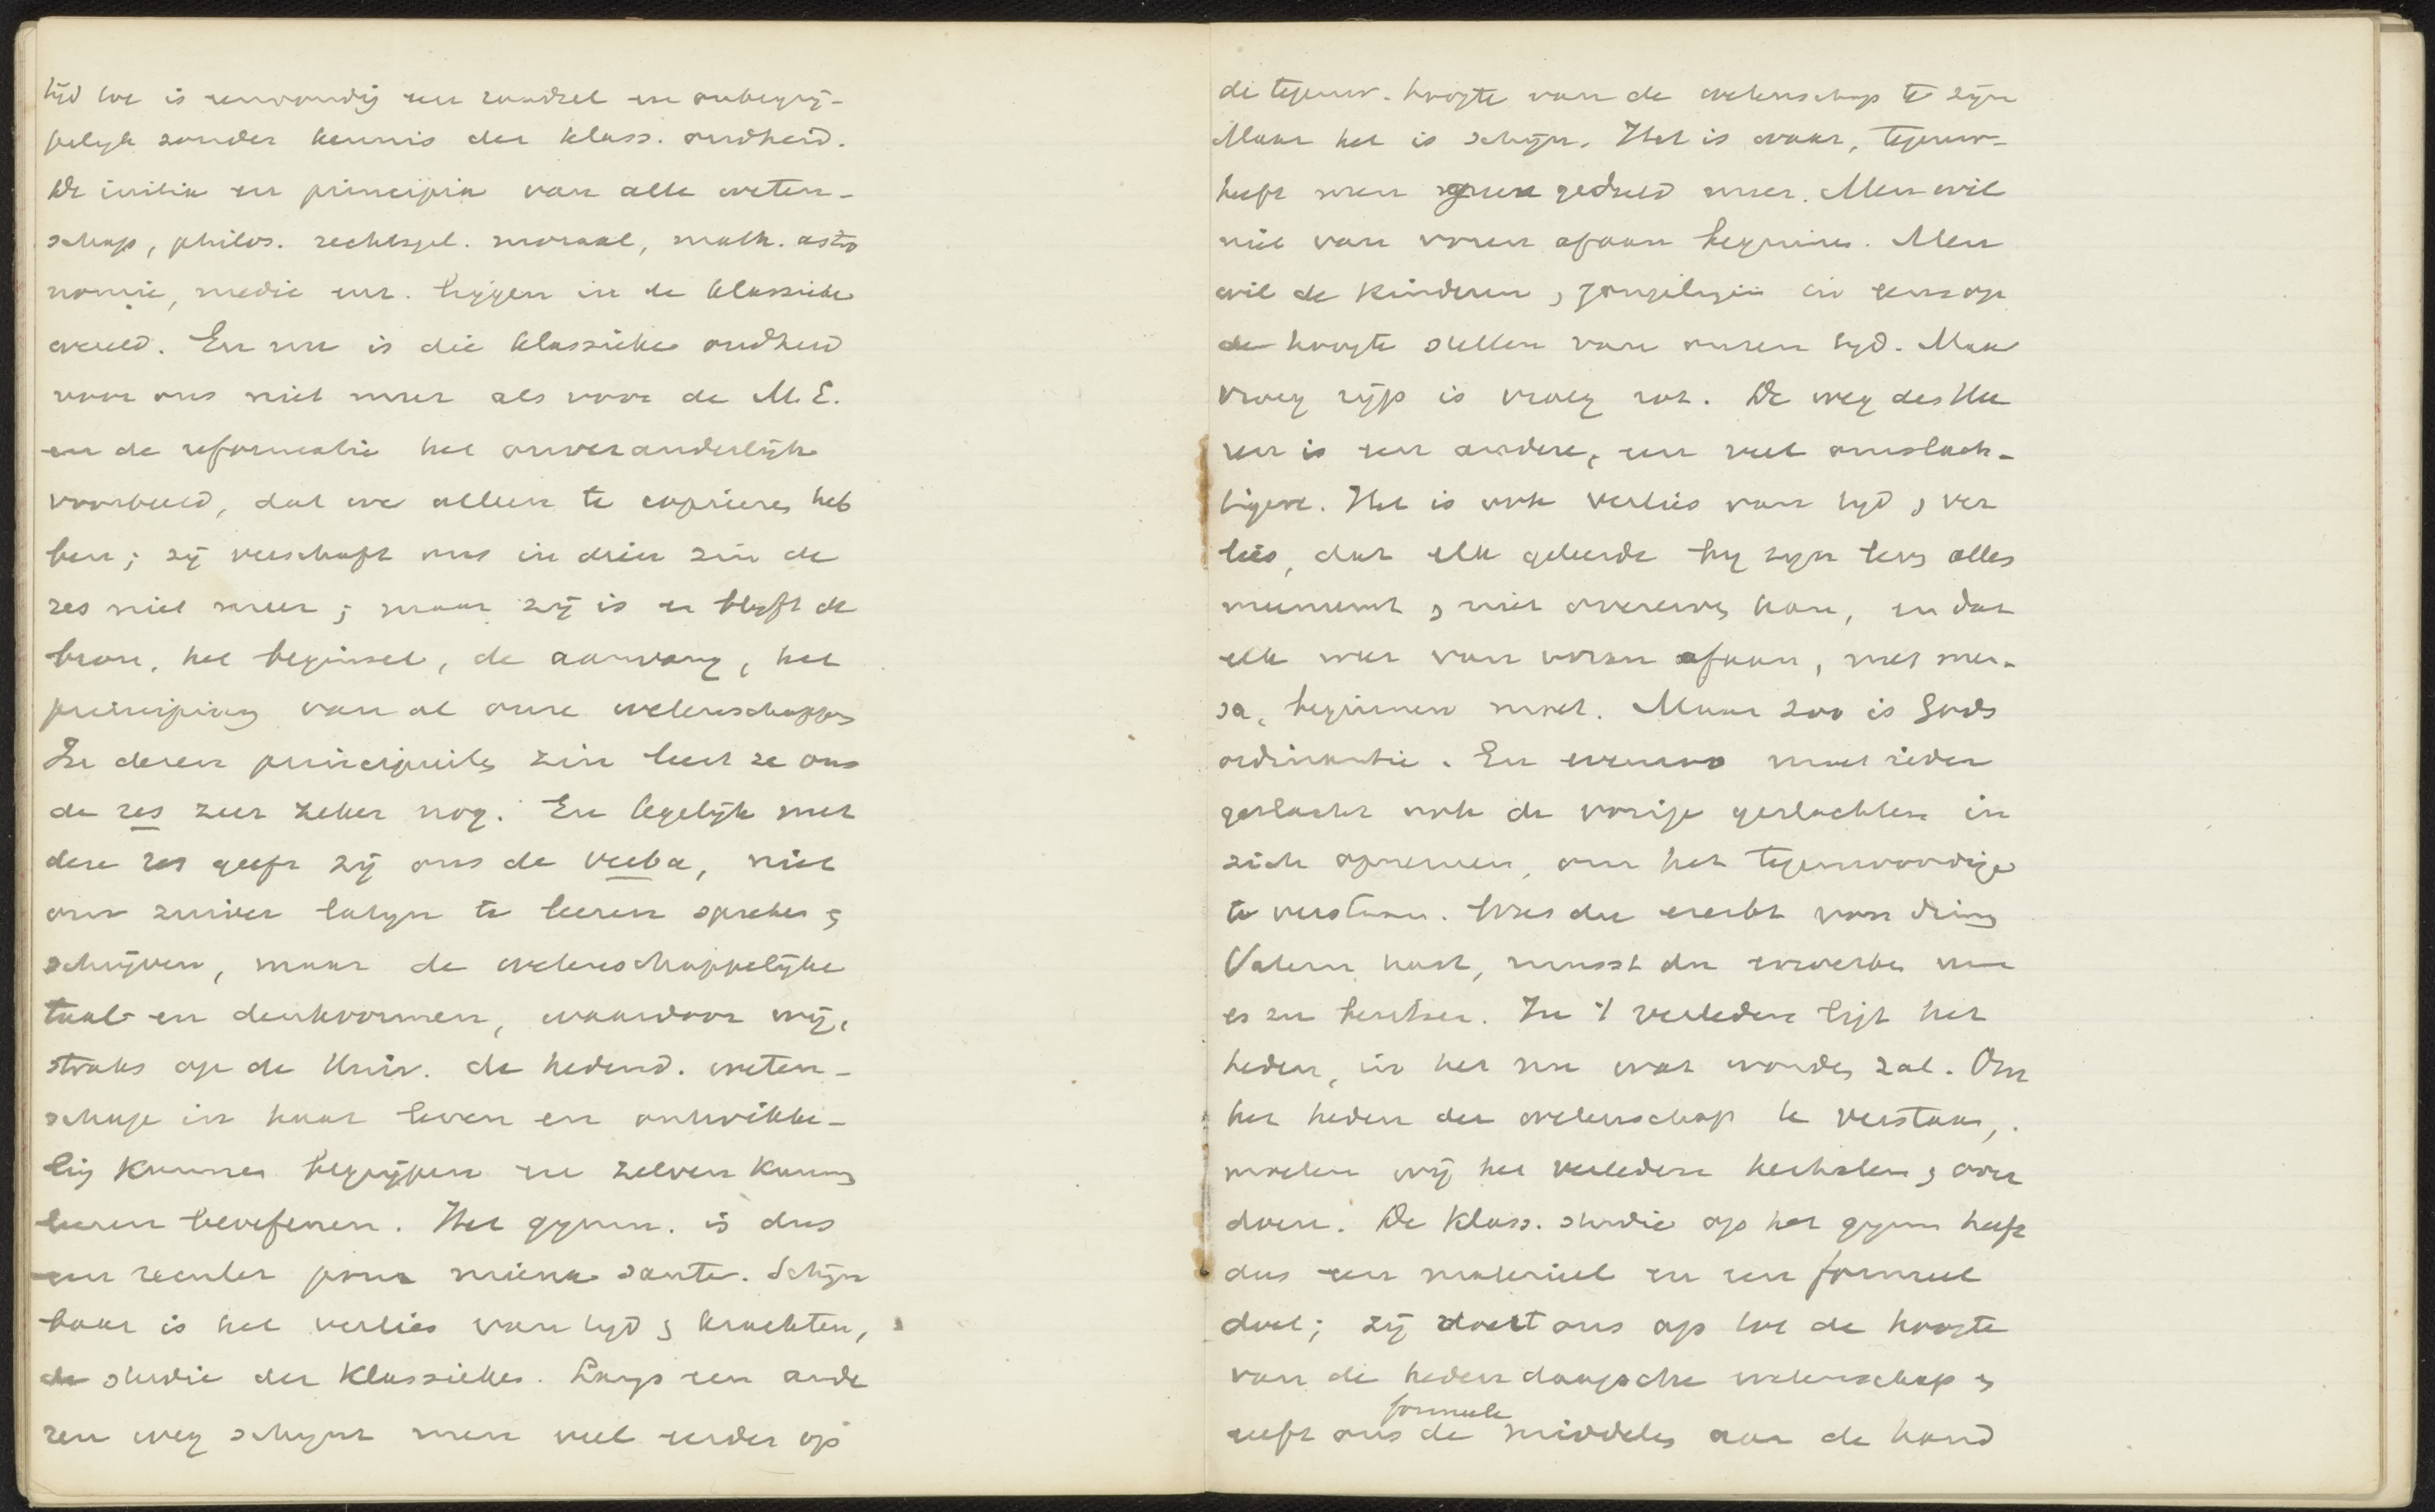 tijd toe is eenvoudig een raadsel en onbegrij-
pelijk zonder kennis der klass. oudheid.
De initia en principia van alle weten-
schap, philos. rechtsgel. moraal, math. astro
nomie, medic enz. liggen in de klassieke
wereld. En nu is die klassieke oudheid
voor ons niet meer als voor de M.E.
en de reformatie het onveranderlijke
voorbeeld, dat we alleen te copieren heb
ben; zij verschaft ons in dien zin de
res niet meer; maar zij is en blijft de
bron, het beginsel, de aanvang, het
principium van al onze wetenschappen
In dezen principieelen zin leert ze ons
de res zeer zeker nog. En tegelijk met
deze res geeft zij ons de verba, niet
om zuiver latijn te leeren spreken &
schrijven, maar de wetenschappelijke
taal- en denkvormen, waardoor wij,
straks op de Univ. de hedend. weten-
schap in haar leven en ontwikke-
ling kunnen begrijpen en zelven kunnen
leeren beoefenen. Het gymn. is dus
een reculer pour mieux sauter. Schijn
baar is het verlies van tijd & krachten,
de studie der klassieken. Langs een ande
ren weg schijnt men veel eerder op
de tegenw. hoogte van de wetenschap te zijn
Maar het is schijn. Het is waar, tegenw-
heeft men geen geduld meer. Men wil
niet van voren afaan beginnen. Men
wil de kinderen, jongelingen in eens op
de hoogte stellen van onzen tijd. Maar
vroeg rijp is vroeg rot. De weg des Hee
ren is een andere, een veel omslach-
tigere. Het is ook verlies van tijd, ver
lies, dat elk geleerde bij zijn sterven alles
meeneemt & niet overerven kan, en dat
elk weer van voren afaan, met men-
sa, beginnen moet. Maar zoo is Gods
ordinantie. En evenzoo moet ieder
geslacht ook de vorige geslachten in
zich opnemen, om het tegenwoordige
te verstaan. Was du ererbt von deinen
Vätern hast, musst du erwerben um
es zu besitzen. In 't verleden ligt het
heden, in het nu wat worden zal. Om
het heden der wetenschap te verstaan,
moeten wij het verleden herhalen & over
doen. De klass. studie op het gymn heeft
dus een materieel en een formeel
doel; zij voert ons op tot de hoogte
van de hedendaagsche wetenschap &
geeft ons de formeele middelen aan de hand